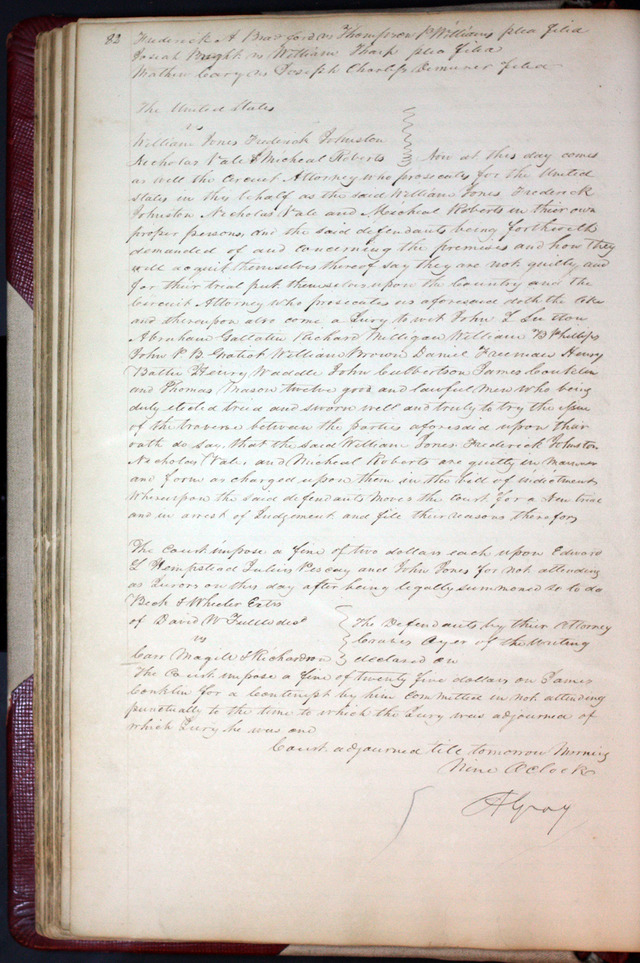 82 Frederick A Bradford vs Thompson P Williams plea filed
Josiah Bright vs William Tharp plea filed
Mathew Cary vs Joseph Charless Demurrer filed
The United States
vs
William Jones Frederick Johnston
Nicholas Vale & Micheal Roberts Now at this day comes
as well the Circuit Attorney who prosecutes for the United
States in this behalf as the said William Jones Frederick
Johnston Nicholas Vale and Micheal Roberts in their own
proper persons, and the said defendants being forthwith
demanded of and concerning the premises and how they
will acquit themselves thereof say they are not guilty, and
for their trial put themselves upon the Country and the
Circuit Attorney who prosecutes as aforesaid doth the like
and thereupon also come a Jury to wit John L Sutton
Abraham Gallatin Richard Milligan William B Phillips
John P B Gratiot William Brown Daniel Freeman Henry
Battu Henry Waddle John Culbertson James Conklin
and Thomas Mason twelve good and lawful men who being
duly elected tried and sworn well and truly to try the issue
of the traverse between the parties aforesaid upon their
oath do say, that the said William Jones Frederick Johnston
Nicholas Vale, and Micheal Roberts are guilty in manner
and form as charged upon them in the bill of indictment
Whereupon the said defendants moves the court for a New trial
and in arrest of Judgement and file their reasons therefor,
The Court impose a fine of two dollars each upon Edward
L Hempstead Julius Pescay and John Jones for not attending
as Jurors on this day after being legally summoned so to do
Beck & Wheeler Exts
of David W Tuttle decd The Defendants by their Attorney
vs Craves Oyer of the Writing
Carr Magill & Richardson declared on
The Court impose a fine of twenty five dollars on James
Conklin for a Contempt by him Committed in not attending
punctually to the time to which the Jury was adjourned of
which Jury he was one
Court adjourned till tomorrow Morning
Nine Oclock
A Gray